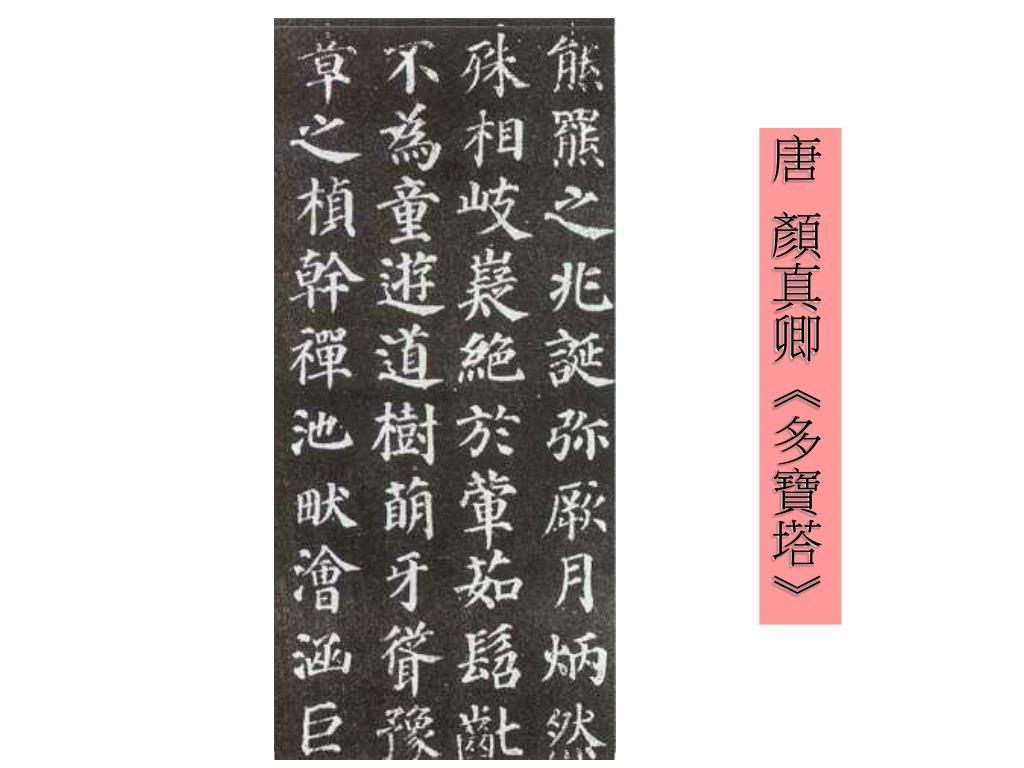 唐 顏真卿《多寶塔》
熊羆之兆誕弥厥月炳然
殊相岐嶷絕於葷茹髫齓
不為童遊道樹萌牙聳豫
章之楨幹禪池畎澮涵巨